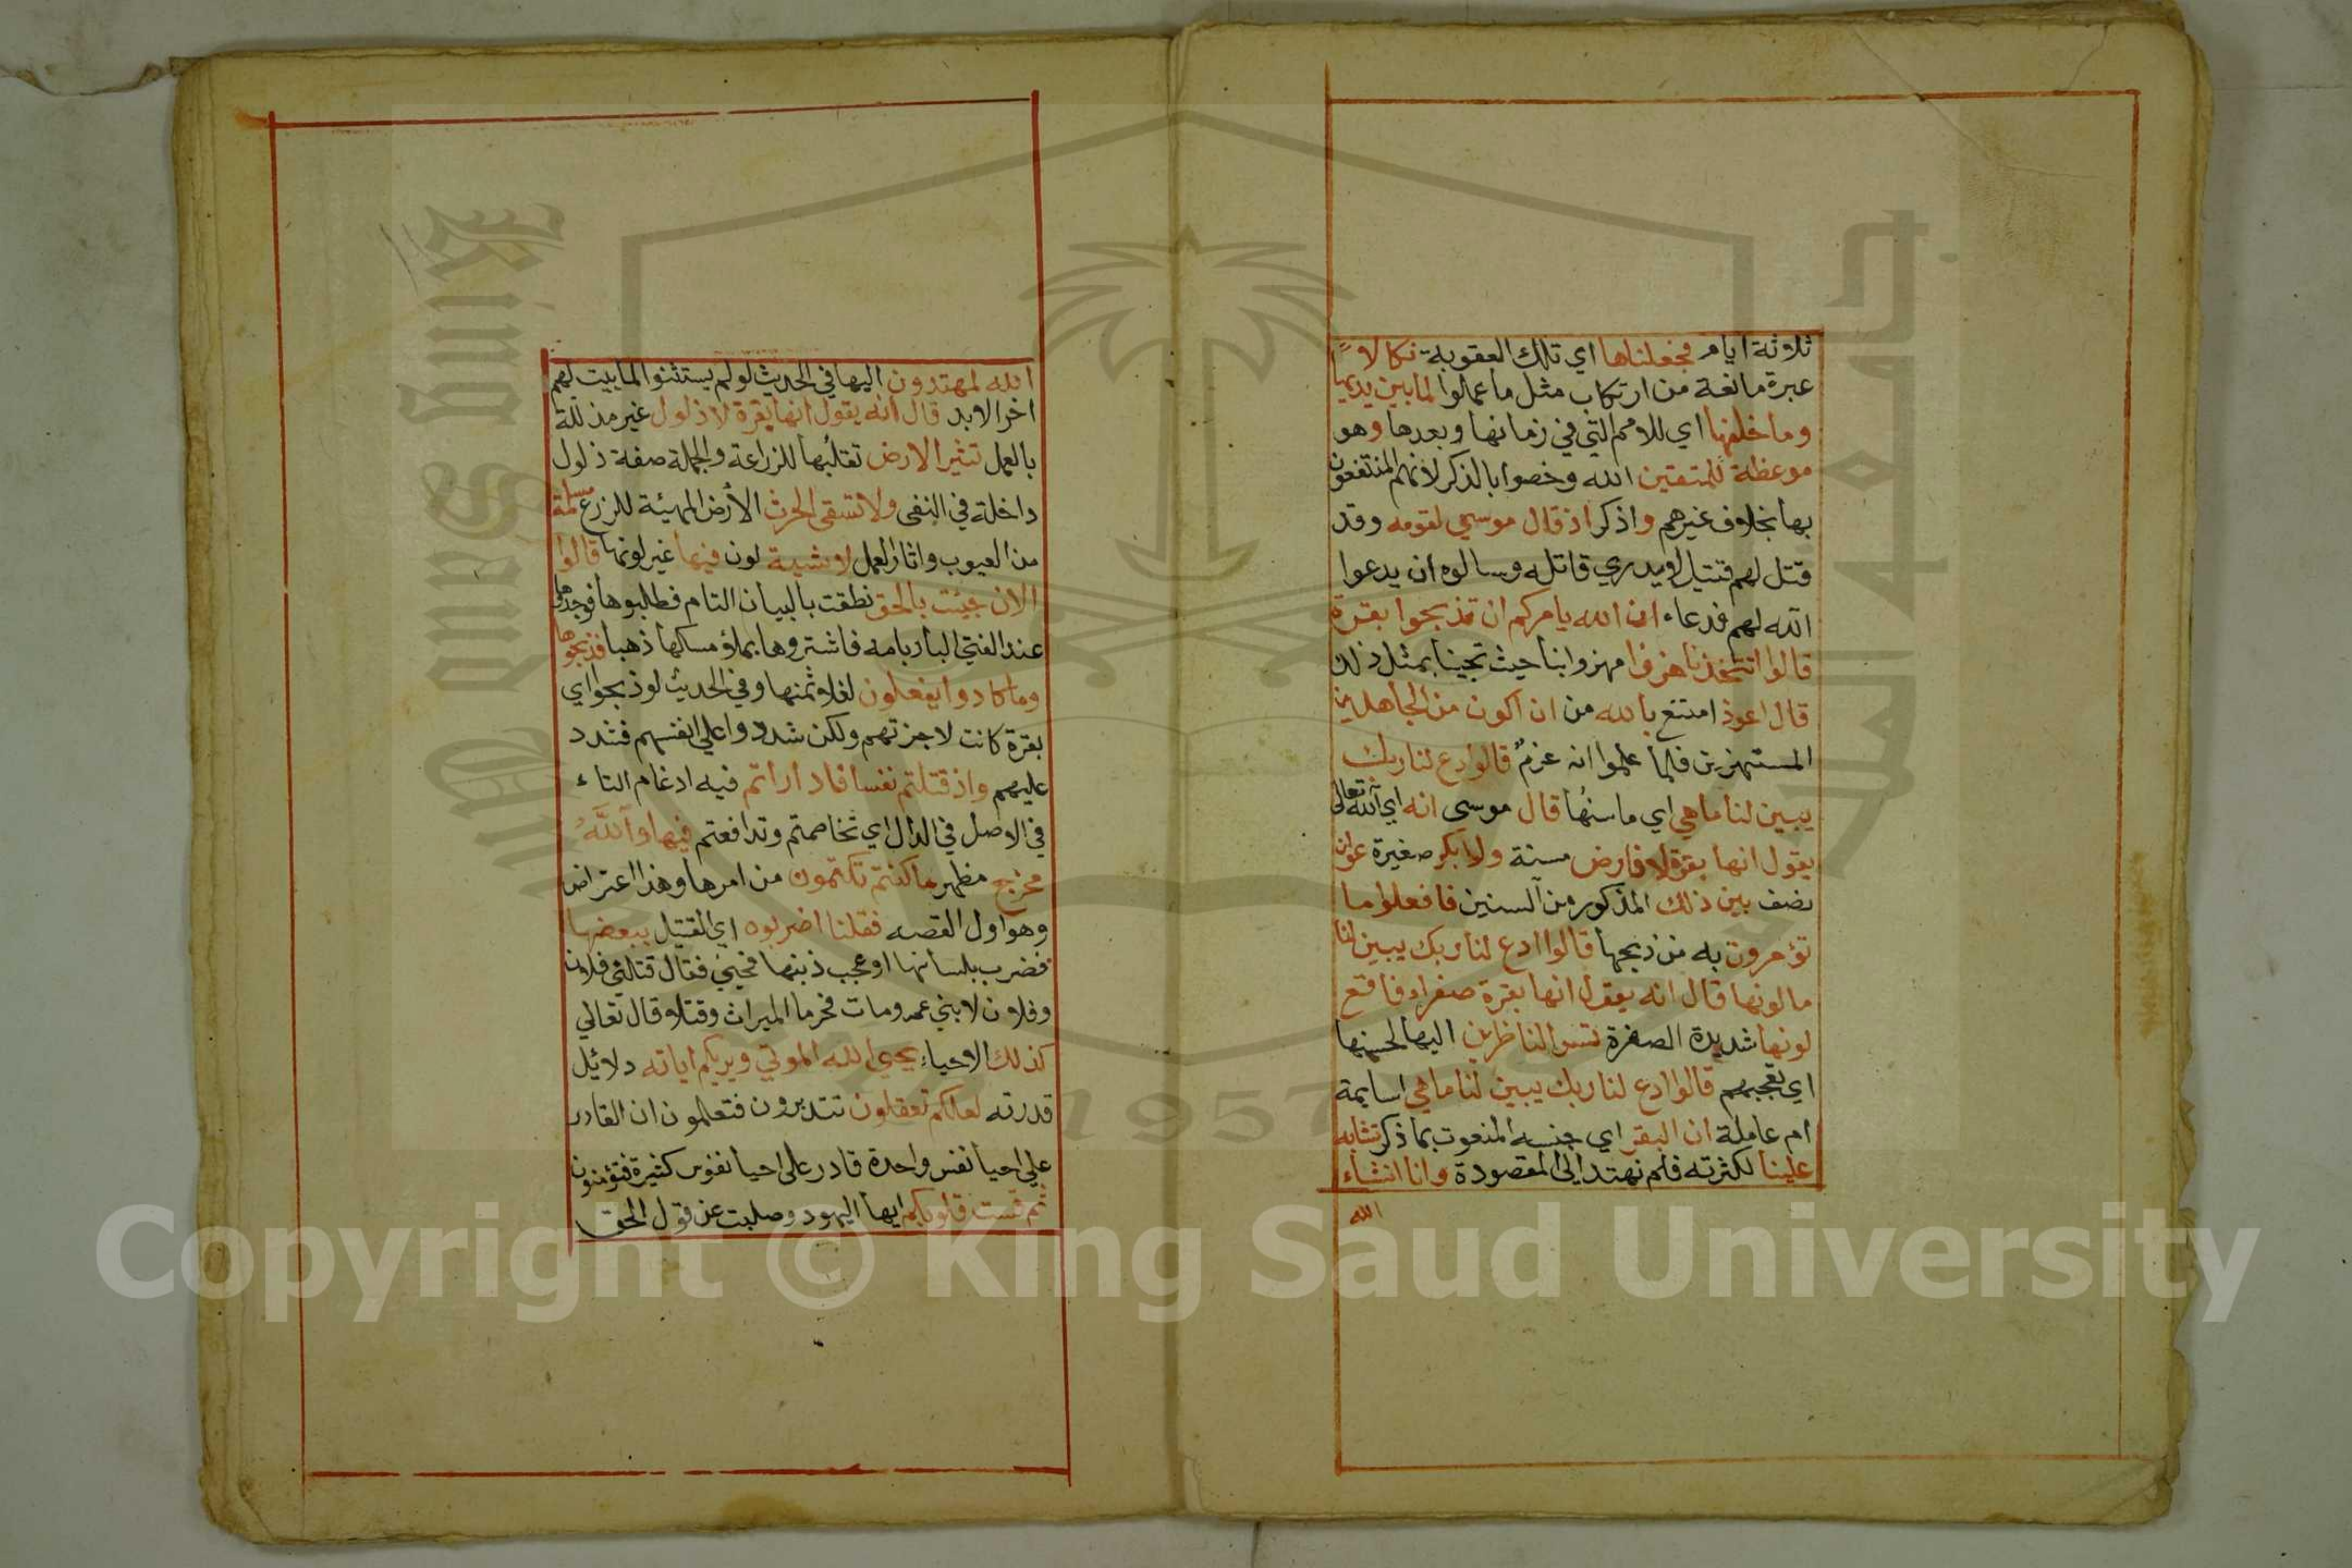 ثلاثة ايام فجعلناها اي تلك العقوبة نكالا
عبرة مانعة من ارتكاب مثل ما عملوا لما بين يديها
وما خلفها اي للامم التي في زمانها وبعدها وهو
موعظة للمتقين الله وخصوا بالذكر لانهم المنتفعون
بها بخلاف غيرهم واذكر اذ قال موسي لقومه وقد
قتل لهم قتيل لا يدري قاتله وسالوه ان يدعوا
الله لهم فدعاء ان الله يامركم ان تذبحوا بقرة
قالوا اتتخذنا هزؤا مهزوا بنا حيث تجيبنا بمثل ذلك
قال اعوذ امتنع بالله من ان اكون من الجاهلين
المستهزين فلما علموا انه عزم قالوا ادع لنا ربك
يبين لنا ما هي اي ما سنها قال موسى انه اي الله تعالى
يقول انها بقرة لا فارض مسنة ولا بكر صغيرة عوان
نصف بين ذلك المذكور من السنين فافعلوا ما
تؤمرون به من ذبحها قالوا ادع لنا ربك يبين لنا
ما لونها قال انه يقول انها بقرة صفراء فاقع
لونها شديدة الصفرة تسر الناظرين اليها لحسنها
اي تعجبهم قالوا ادع لنا ربك يبين لنا ما هي اسايمة
ام عاملة ان البقر اي جنسه المنعوت بما ذكر تشابه
علينا لكثرته فلم نهتد الى المقصودة وانا انشاء
الله
الله لمهتدون اليها في الحديث لو لم يستثنوا لما بيت لهم
اخر الابد قال انه يقول انها بقرة لا ذلول غير مذللة
بالعمل تثير الارض تقلبها للزراعة والجملة صفة ذلول
داخلة في النفى ولا تسقى الحرث الأرض المهيئة للزرع مسلمة
من العيوب واثار العمل لا شية لون فيها غير لونها قالوا
الان جيئت بالحق نطقت بالبيان التام فطلبوها فوجدوها
عند الفتي البار بامه فاشتروها بملؤ مسكها ذهبا فذبحوها
وما كادوا يفعلون لغلاء ثمنها وفي الحديث لو ذبحوا اي
بقرة كانت لاجزتهم ولكن شددوا علي انفسهم فشدد
عليهم واذ قتلتم نفسا فادارأتم فيه ادغام التاء
في الاصل في الدال اي تخاصمتم وتدافعتم فيها والله
مخرج مظهر ما كنتم تكتمون من امرها وهذا اعتراض
وهو اول القصه فقلنا اضربوه اي القتيل ببعضها
فضرب بلسانها او عجب ذنبها فحيي فقال قتلني فلان
وفلان لابني عمه ومات فحرما الميراث وقتلا وقال تعالي
كذلك الاحياء يحيي الله الموتي ويريكم اياته دلائل
قدرته لعلكم تعقلون تتدبرون فتعلمون ان القادر
علي احيا نفس واحدة قادر على احيا نفوس كثيرة فتؤمنون
ثم قست قلوبكم ايها اليهود وصلبت عن قول الحق
1957
Copyright © King Saud University